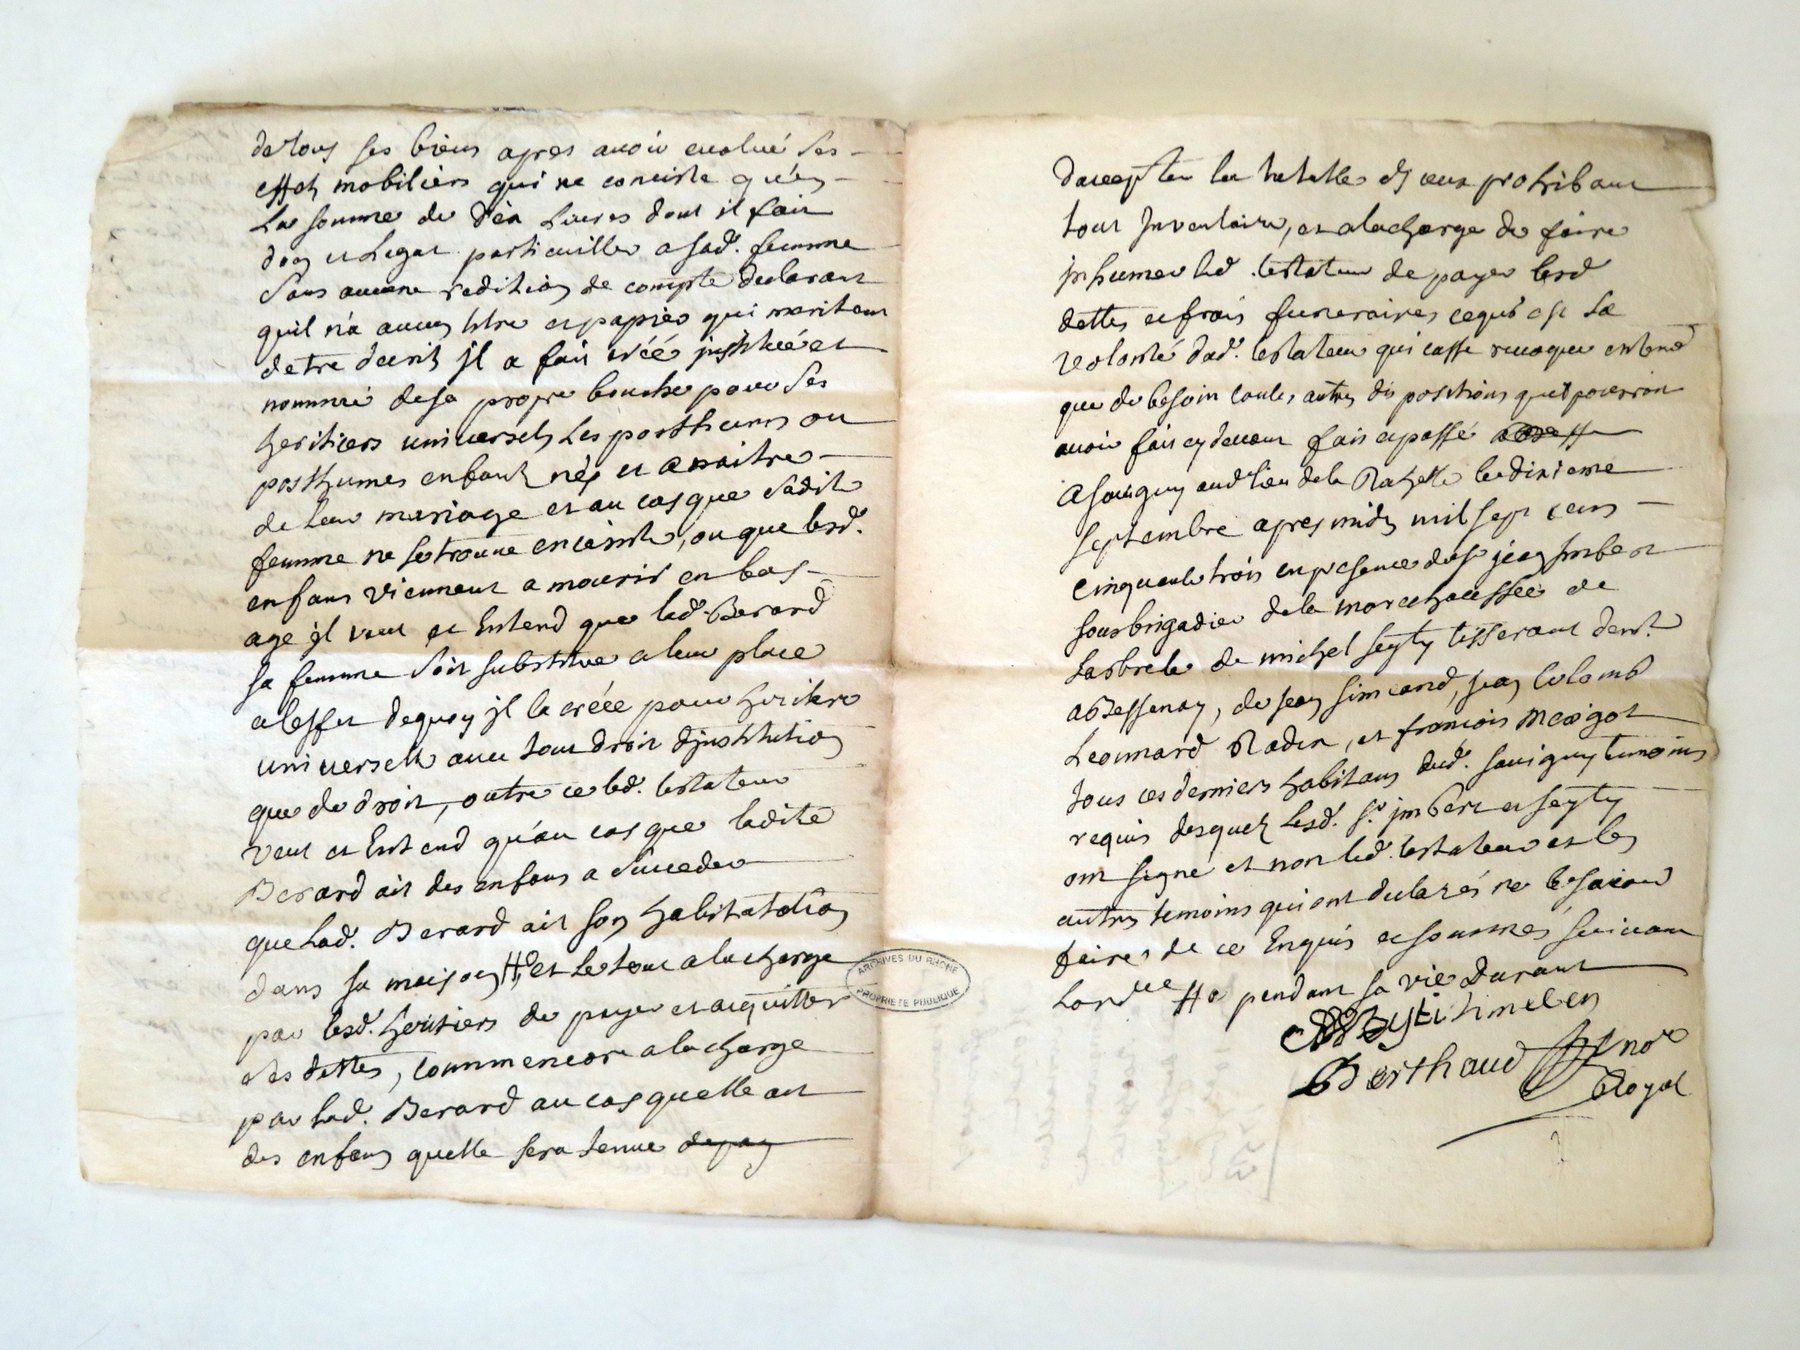 de tous ses biens apres avoir evalué ses
effets mobiliers qui ne consiste qu'en
La somme de dix Livres dont il fait
don et Legat particuillier a sad. femme
sans aucune reditions de compte declarant
quil n'a aucun titre et papies qui meritent
detre decrit jl a fait créé justitué et
nommé de sa propre bouche pour ses
heritiers universels Les posthums ou
posthumes enfants nés et a naitre
de leur mariage et au cas que sadite
femme ne se trouve enceinte, ou que lesd.
enfans viennent a mourir en bas
age jl veut et Entend que lad. Berard
sa femme soit substitue a leur place
a leffet dequoy jl la créée pour heritiere
universelle avec tout droit djnstitution
que de droit, outre ce led. testateur
veut et Entend qu'au cas que ladite
Berard ait des enfans a succeder
que Lad. Berard ait son habitation
dans sa maison # et le tout a la charge
par lesd. heritiers de payer et acquitter
ses dettes, comme encore a la charge
par Lad. Berard au cas quelle ait
des enfans quelle sera tenue de pay
daccepter la tutelle dj ceux prohibant
tout Jnventaire, et a la charge de faire
jnhumer led. testateur de payer lesd
dettes et frais funeraires ce qui est La
volonté dud. testateur qui casse revoque entend
que de besoin toutes autres dispositions quil pourroit
avoir fait cy devant fait et passé
A Savigny audt lieu de la le dixieme
septembre apres midy mil sept cens
cinquante trois en presence de sr jean Jmbert
sous brigadier de la marechaussée de
Lasbrele de michel seyty tisserant demt.
a Bessenay, de jean simeand, jean Colomb
Leonnard Radix, et francois Meigot
tous ces derniers habitans dud. Savigny temoins
requis desquels Lesd. sr. jmbert et seyty
ont signé et non led. testateur et les
autres temoins qui ont declarés ne le scavoir
faire, de ce Enquis et sommés suivant
Lordce # pendant sa vie Durant
Berthaud nore
Royal
ARCHIVES DU RHONE
PROPRIETE PUBLIQUE